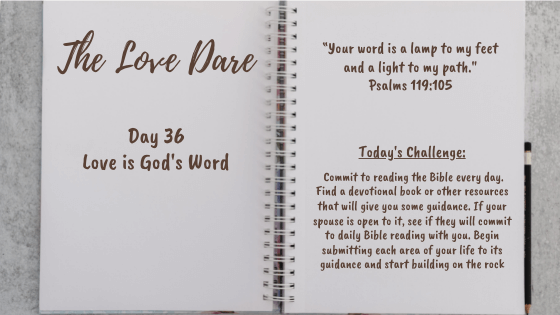 The Love Dare
Day 36
Love is God's Word
"Your word is a lamp to my feet
and a light to my path."
Psalms 119:105
Today's Challenge:
Commit to reading the Bible every day.
Find a devotional book or other resources
that will give you some guidance. If your
spouse is open to it, see if they will commit
to daily Bible reading with you. Begin
submitting each area of your life to its
guidance and start building on the rock